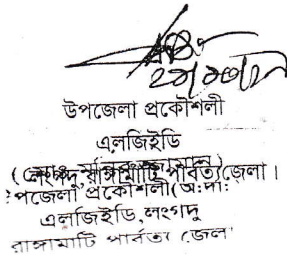 উপজেলা প্রকৌশলী
এলজিইডি
লংগদু, রাঙ্গামাটি পার্বত্য জেলা।
উপজেলা প্রকৌশলী(অঃদাঃ
এলজিইডি, লংগদু
রাঙ্গামাটি পার্বত্য জেলা